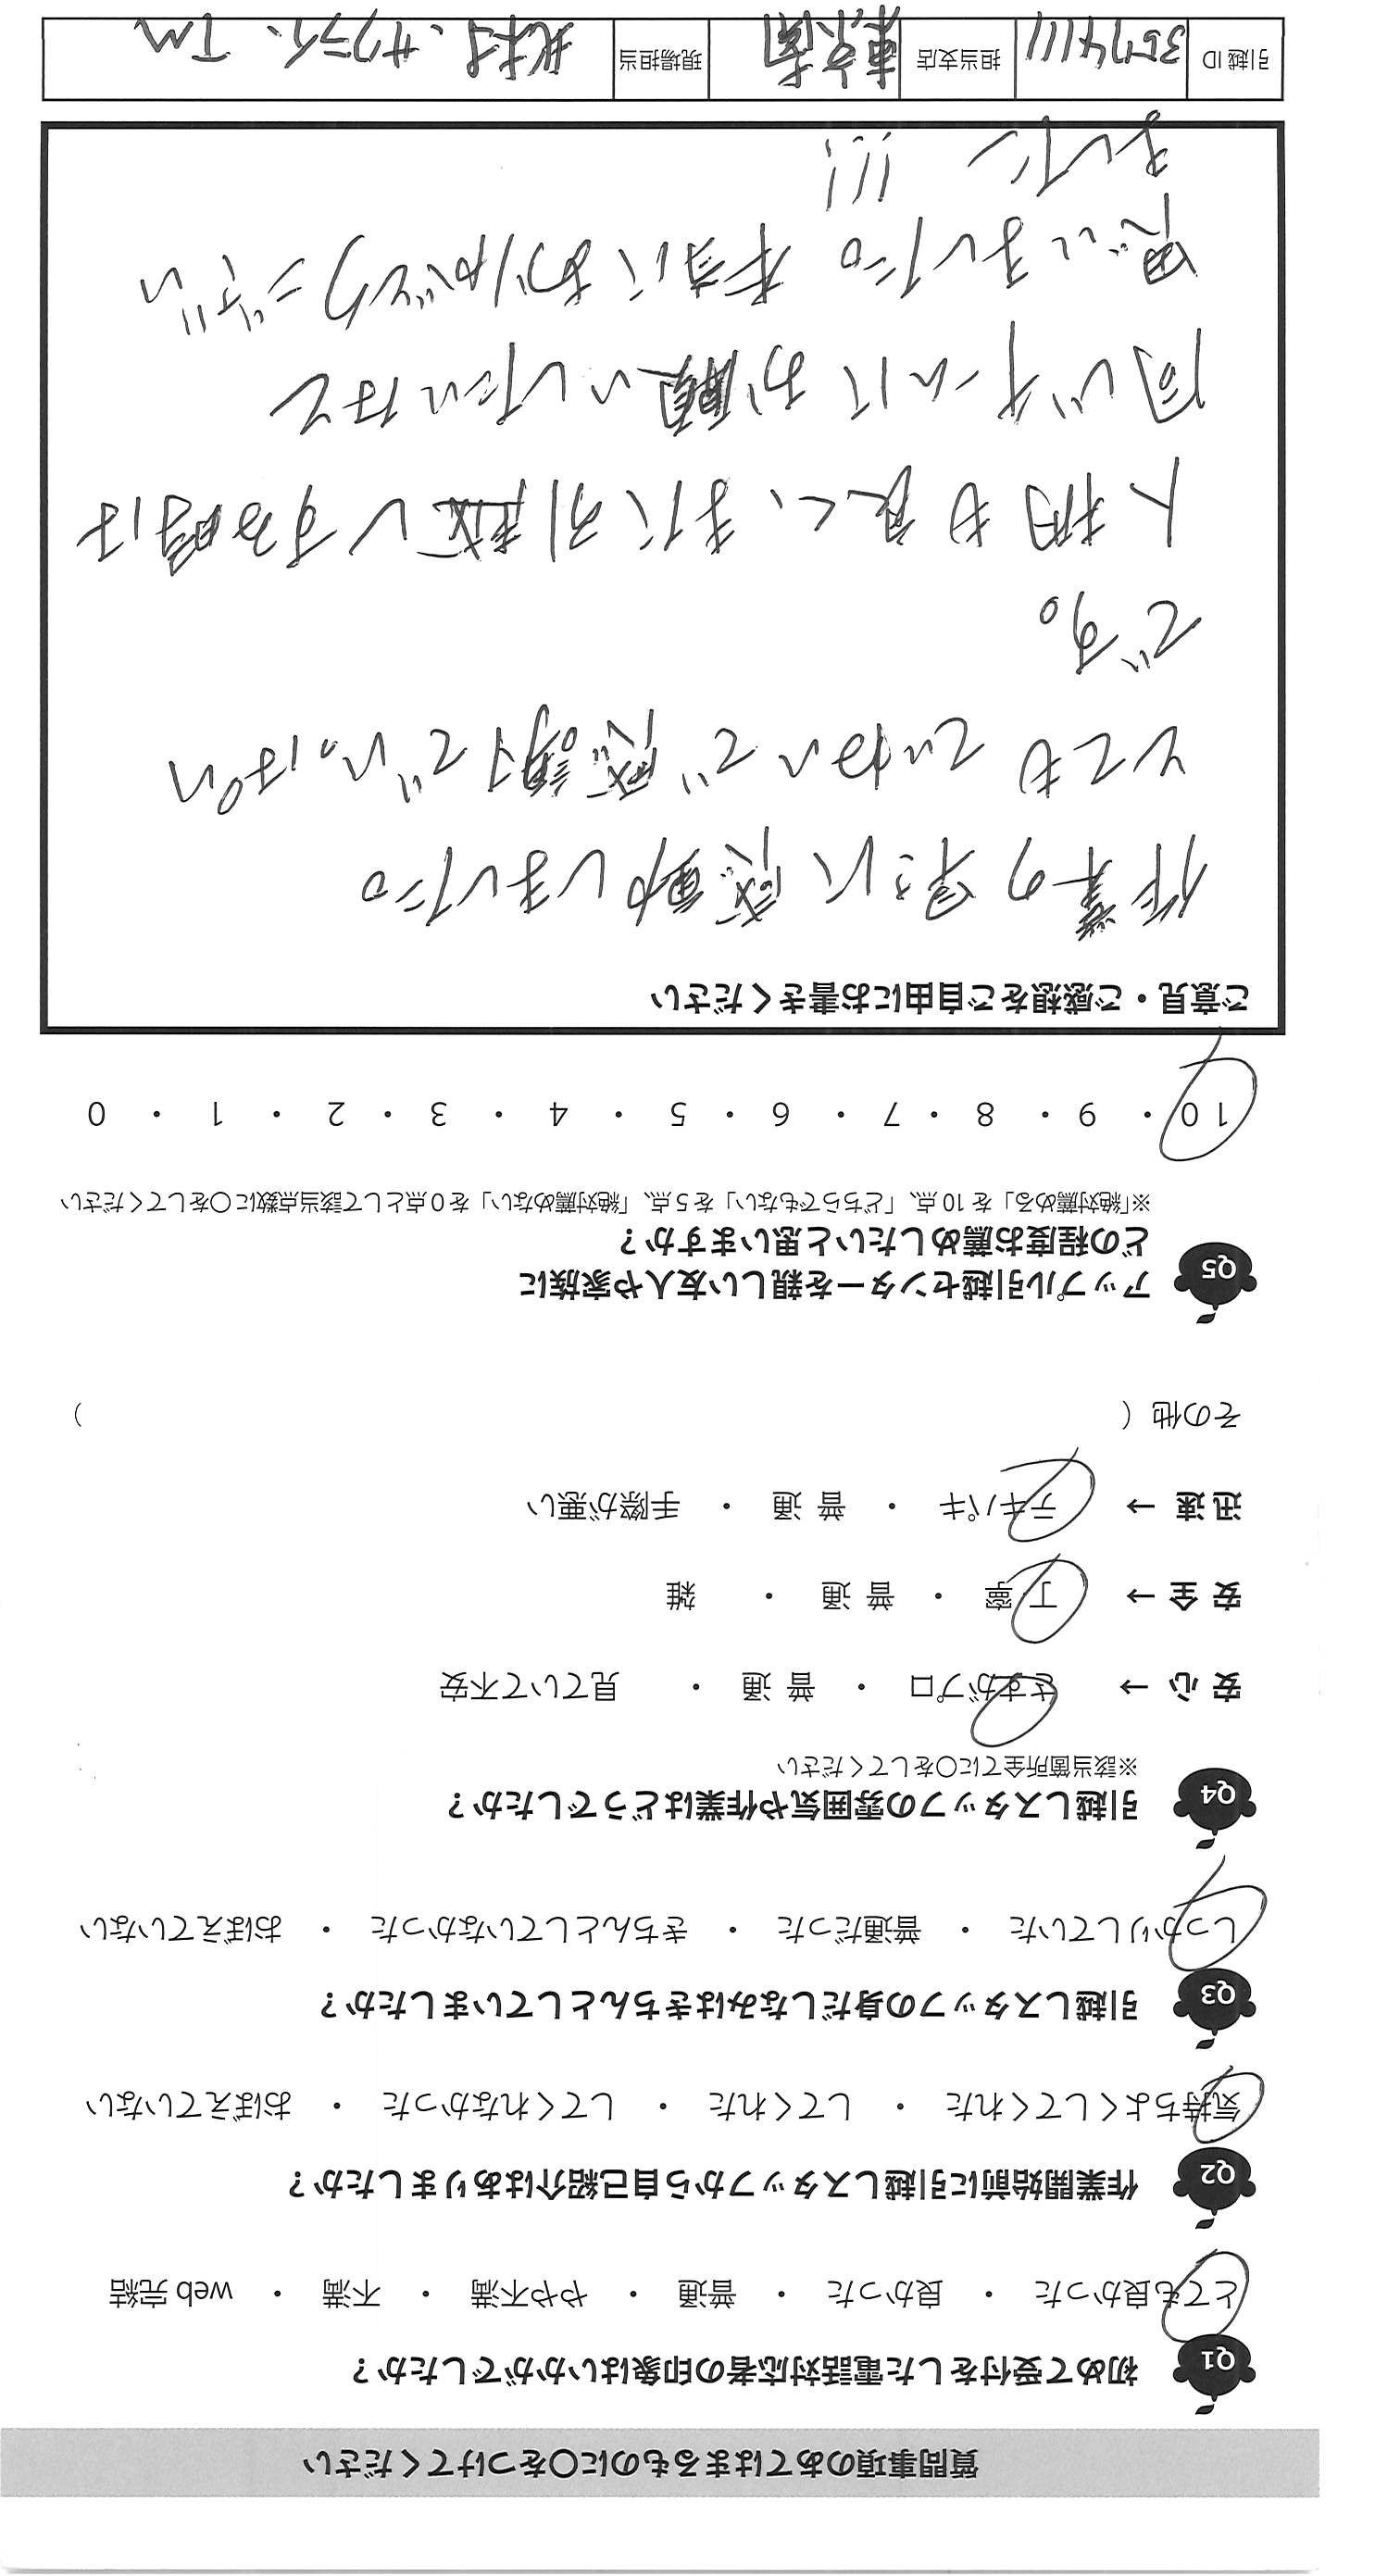 質問事項のあてはまるものに〇をつけてください
Q1 初めて受付をした電話対応者の印象はいかがでしたか？
とても良かった ・ 良かった ・ 普通 ・ やや不満 ・ 不満 ・ web 完結
Q2 作業開始前に引越しスタッフから自己紹介はありましたか？
気持ちよくしてくれた ・ してくれた ・ してくれなかった ・ おぼえていない
Q3 引越しスタッフの身だしなみはきちんとしていましたか？
しっかりしていた ・ 普通だった ・ きちんとしていなかった ・ おぼえていない
Q4 引越しスタッフの雰囲気や作業はどうでしたか？
※該当箇所全てに〇をしてください
安心 → さすがプロ ・ 普通 ・ 見ていて不安
安全 → 丁寧 ・ 普通 ・ 雑
迅速 → テキパキ ・ 普通 ・ 手際が悪い
その他（ ）
Q5 アップル引越センターを親しい友人や家族に
どの程度お薦めしたいと思いますか？
※「絶対薦める」を 10 点、「どちらでもない」を 5 点、「絶対薦めない」を 0 点として該当点数に〇をしてください
10 ・ 9 ・ 8 ・ 7 ・ 6 ・ 5 ・ 4 ・ 3 ・ 2 ・ 1 ・ 0
ご意見・ご感想をご自由にお書きください
作業の早さに感動しました。
とても ていねいで 感謝で いっぱい
です。
人柄も良く、また引越しする時は
同じチームにお願いしたいなと
思いました。本当にありがとうござい
ました !!!
引越 ID 3574111 担当支店 東京南 現場担当 北村、サクライ、Tm